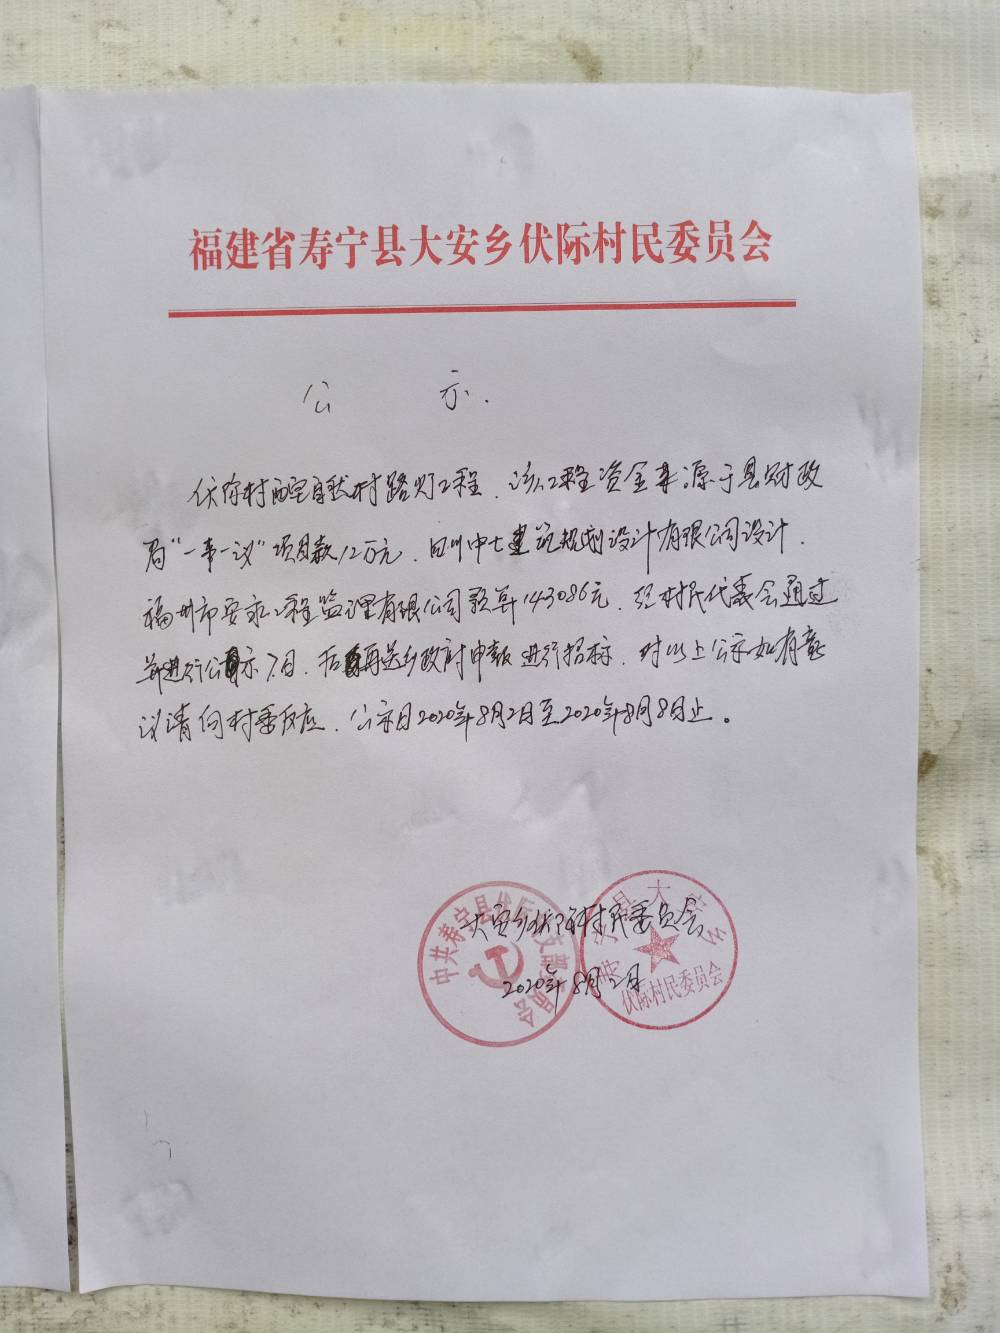 福建省寿宁县大安乡伏际村民委员会
公 示.
伏际村 自然村路灯工程，该工程资金来源于县财政
局“一事一议”项目款12万元，四川中七建筑规划设计有限公司设计，
福州市安永工程监理有限公司预算143086元，经村民代表会通过
并进行公示7日，后再送乡政府申报进行招标，对以上公示如有意
议请向村委反应，公示日2020年8月2日至2020年8月8日止。
大安乡伏际村民委员会
2020年8月2日
中共寿宁县伏际 支部委员会
寿宁县大安乡
伏际村民委员会